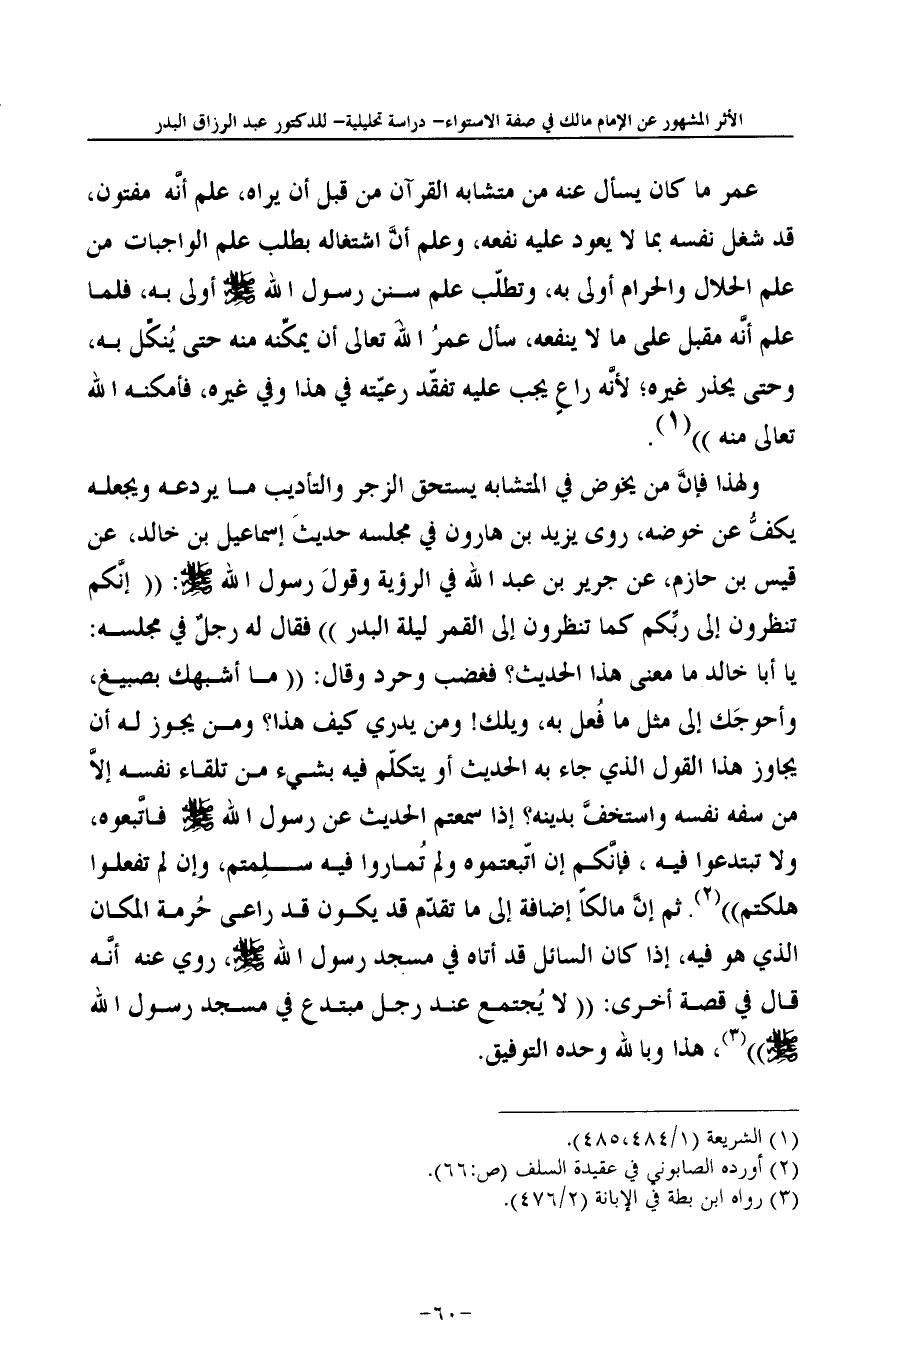 الأثر المشهور عن الإمام مالك في صفة الاستواء- دراسة تحليلية- للدكتور عبد الرزاق البدر
عمر ما كان يسأل عنه من متشابه القرآن من قبل أن يراه، علم أنَّه مفتون،
قد شغل نفسه بما لا يعود عليه نفعه، وعلم أنَّ اشتغاله بطلب علم الواجبات من
علم الحلال والحرام أولى به، وتطلّب علم سنن رسول الله ﷺ أولى به، فلما
علم أنَّه مقبل على ما لا ينفعه، سأل عمرُ اللهَ تعالى أن يمكّنه منه حتى يُنكّل به،
وحتى يحذر غيره؛ لأنَّه راعٍ يجب عليه تفقّد رعيّته في هذا وفي غيره، فأمكنه الله
تعالى منه ))(١).
ولهذا فإنَّ من يخوض في المتشابه يستحق الزجر والتأديب ما يردعه ويجعله
يكفُّ عن خوضه، روى يزيد بن هارون في مجلسه حديثَ إسماعيل بن خالد، عن
قيس بن حازم، عن جرير بن عبد الله في الرؤية وقولَ رسول الله ﷺ: (( إنَّكم
تنظرون إلى ربِّكم كما تنظرون إلى القمر ليلة البدر )) فقال له رجلٌ في مجلسه:
يا أبا خالد ما معنى هذا الحديث؟ فغضب وحرد وقال: (( ما أشبهك بصبيغ،
وأحوجَك إلى مثل ما فُعل به، ويلك! ومن يدري كيف هذا؟ ومن يجوز له أن
يجاوز هذا القول الذي جاء به الحديث أو يتكلّم فيه بشيء من تلقاء نفسه إلاَّ
من سفه نفسه واستخفَّ بدينه؟ إذا سمعتم الحديث عن رسول الله ﷺ فاتَّبعوه،
ولا تبتدعوا فيه ، فإنَّكم إن اتّبعتموه ولم تُماروا فيه سلِمتم، وإن لم تفعلوا
هلكتم))(٢). ثم إنَّ مالكاً إضافة إلى ما تقدّم قد يكون قد راعى حُرمة المكان
الذي هو فيه، إذا كان السائل قد أتاه في مسجد رسول الله ﷺ، روي عنه أنَّه
قال في قصة أخرى: (( لا يُجتمع عند رجل مبتدع في مسجد رسول الله
ﷺ))(٣)، هذا وبالله وحده التوفيق.
(١) الشريعة (٤٨٤/١،٤٨٥).
(٢) أورده الصابوني في عقيدة السلف (ص:٦٦).
(٣) رواه ابن بطة في الإبانة (٤٧٦/٢).
-٦٠-